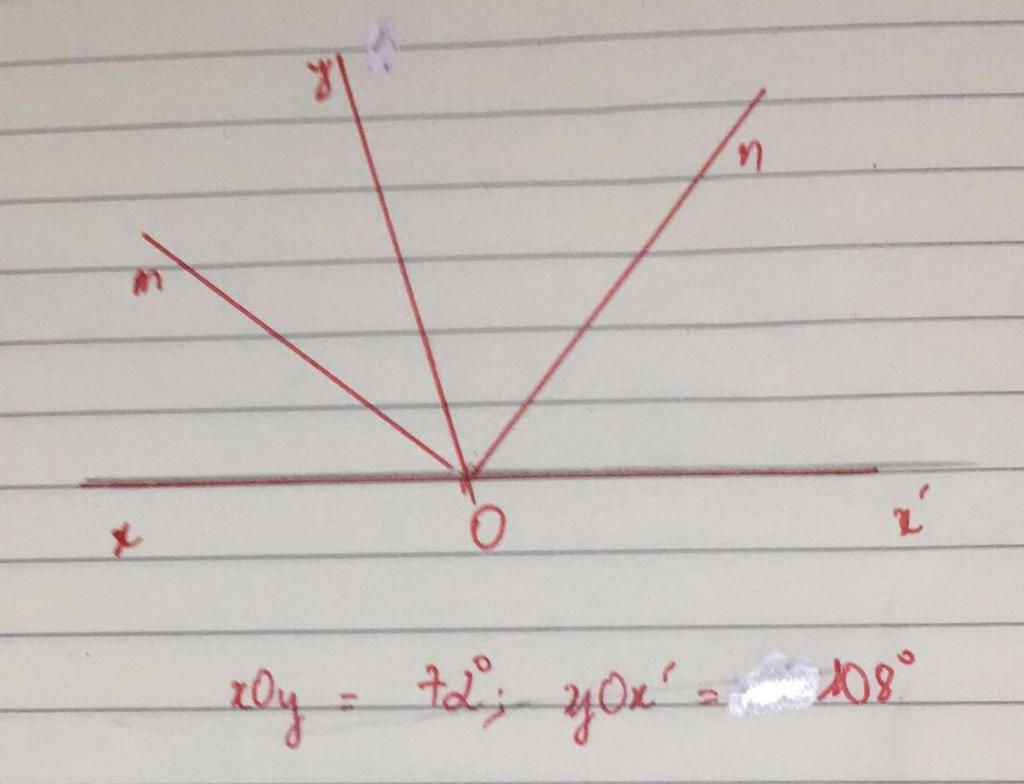 y
n
m
O
x
x'
xOy = 72°; yOx' = 108°